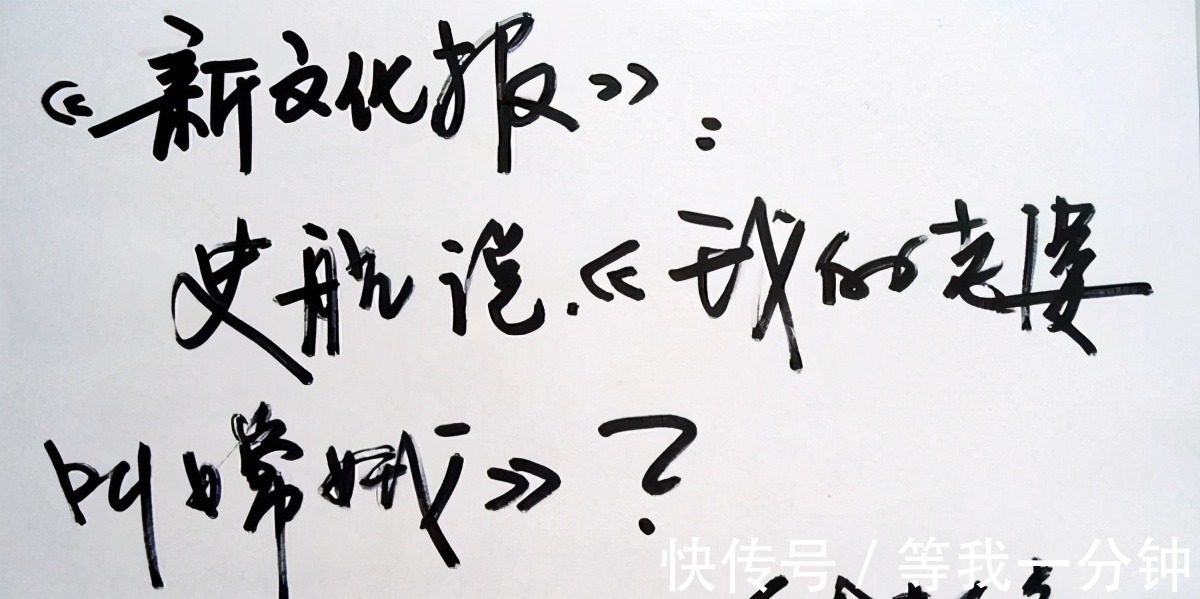 《新文化报》：
史航说.《我的老婆
叫嫦娥》？
快传号/等我一分钟